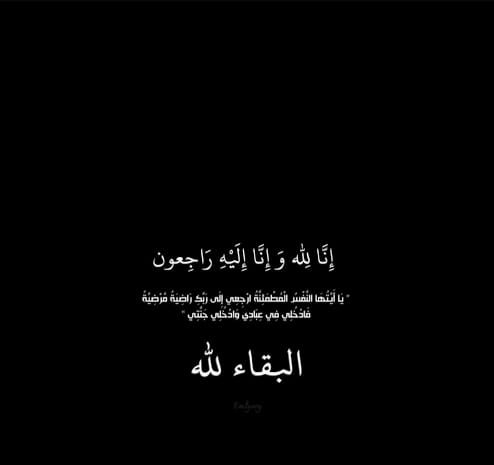 إِنَّا لِلَّهِ وَ إِنَّا إِلَيْهِ رَاجِعون
" يَا أَيَّتُهَا النَّفْسُ الْمُطْمَئِنَّةُ ارْجِعِي إِلَى رَبِّكِ رَاضِيَةً مَّرْضِيَّةً
فَادْخُلِي فِي عِبَادِي وَادْخُلِي جَنَّتِي "
البقاء لله